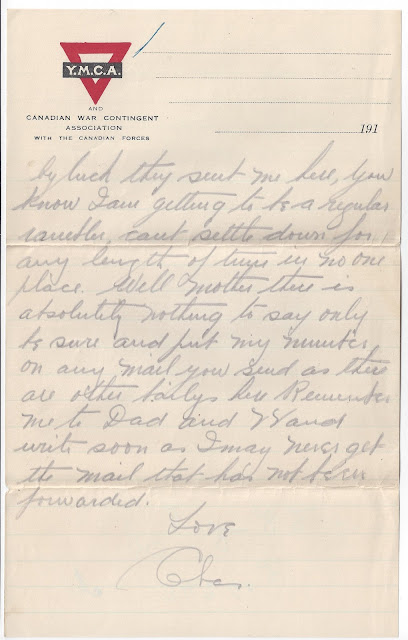 Y.M.C.A.
AND
CANADIAN WAR CONTINGENT
ASSOCIATION
WITH THE CANADIAN FORCES
191
by luck they sent me here, you
know I am getting to be a regular
rambler, cant settle down for
any length of time in no one
place. Well mother there is
absolutely nothing to say only
be sure and put my number
on any mail you send as there
are other baileys here Remember
me to Dad and Wand
write soon as I may never get
the mail that has not been
forwarded.
Love
Chas.